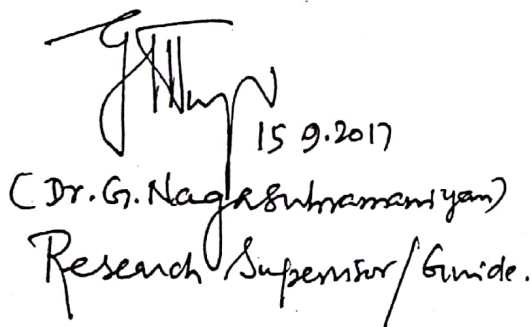 15 9.2017
(Dr. G. Nagasubramaniyan)
Research Supervisor/Guide.